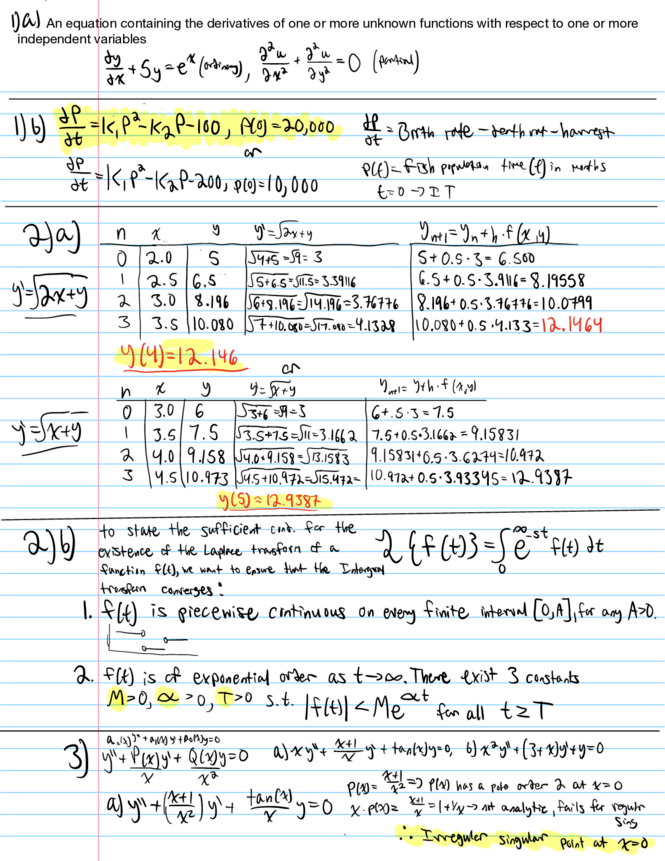 1)a) An equation containing the derivatives of one or more unknown functions with respect to one or more
independent variables
dy/dx + 5y = e^x (ordinary), ∂²u/∂x² + ∂²u/∂y² = 0 (partial)
1)b) dP/dt = K₁P² - K₂P - 100, P(0) = 20,000
dP/dt = Birth rate - death rate - harvest
or
dP/dt = K₁P² - K₂P - 200, P(0) = 10,000
P(t) = fish population time (t) in months
t=0 →
2)a)
n x y y' = √2x+y y_{n+1} = y_n + h · f(x,y)
0 2.0 5 √4+5 = √9 = 3 5 + 0.5 · 3 = 6.500
y' = √2x+y
1 2.5 6.5 √5+6.5 = √11.5 = 3.39116 6.5 + 0.5 · 3.9116 = 8.19558
2 3.0 8.196 √6+8.196 = √14.196 = 3.76776 8.196 + 0.5 · 3.76776 = 10.0799
3 3.5 10.080 √7+10.080 = √17.080 = 4.1328 10.080 + 0.5 · 4.133 = 12.1464
y(4) = 12.146
or
n x y y' = √x+y y_{n+1} = y + h · f(x,y)
0 3.0 6 √3+6 = √9 = 3 6 + .5 · 3 = 7.5
y' = √x+y
1 3.5 7.5 √3.5+7.5 = √11 = 3.1662 7.5 + 0.5 · 3.1662 = 9.15831
2 4.0 9.158 √4.0+9.158 = √13.1583 9.15831 + 0.5 · 3.6274 = 10.972
3 4.5 10.973 √4.5+10.972 = √15.472 = 10.972 + 0.5 · 3.93345 = 12.9387
y(5) = 12.9387
2)b) to state the sufficient cont. for the
existence of the Laplace transform of a
function f(t), we want to ensure that the Intergral
transform converges:
ℒ{f(t)} = ∫₀^∞ e^{-st} f(t) dt
1. f(t) is piecewise continuous on every finite interval [0,A], for any A>0.
2. f(t) is of exponential order as t→∞. There exist 3 constants
M>0, α>0, T>0 s.t. |f(t)| < Me^{αt} for all t ≥ T
3) a₂(x)y'' + a₁(x)y' + a₀(x)y = 0
y'' + P(x)/x y' + Q(x)/x² y = 0 a) xy'' + x+1/x y' + tan(x)y = 0, b) x²y'' + (3+x)y' + y = 0
P(x) = x+1/x² => P(x) has a pole order 2 at x=0
a) y'' + (x+1/x²) y' + tan(x)/x y = 0
x · P(x) = x+1/x = 1+1/x → not analytic, fails for regular
sing
∴ Irregular singular point at x=0